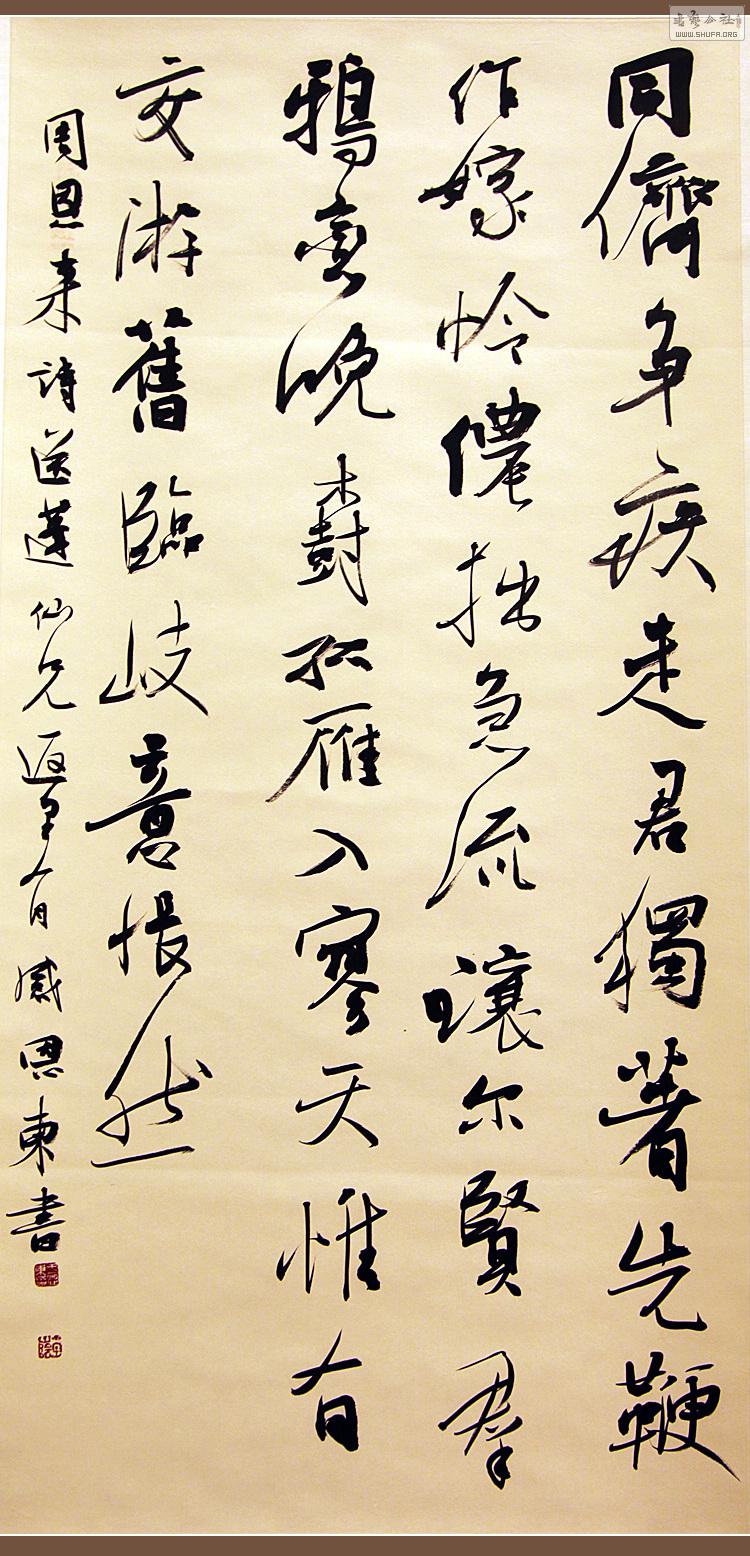 同儕争疾走君獨著先鞭
作嫁怜儂拙急流讓尔賢羣
鴉恋晚樹孤雁入寥天惟有
交游舊臨岐意悵然
周恩来詩送蓬仙兄返里有感恩東書
WWW.SHUFA.ORG